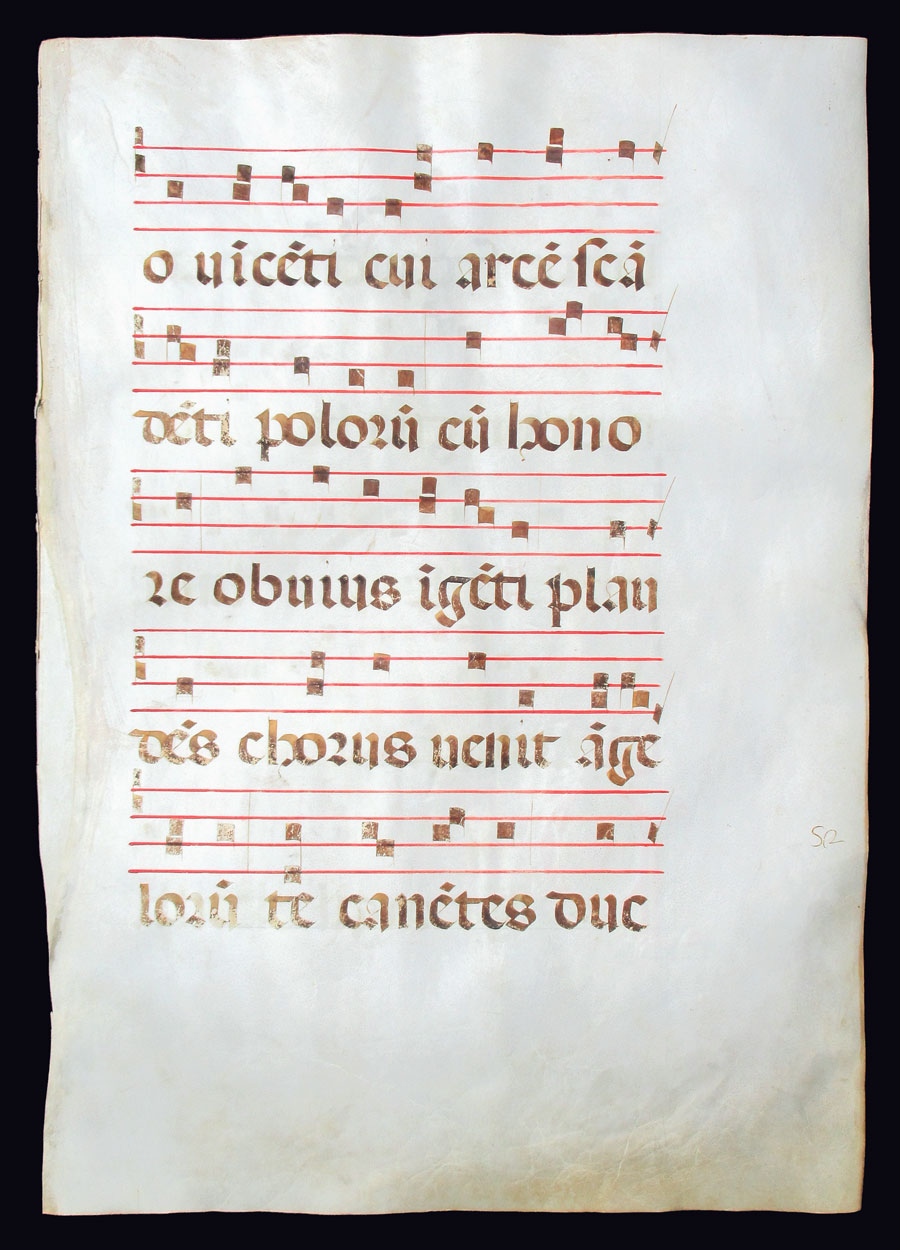 o uicēti cui arcē ſcā
dēti polorū cū hono
re obuius īgēti plau
dēs chorus uenit āge
lorū te canētes duc
52